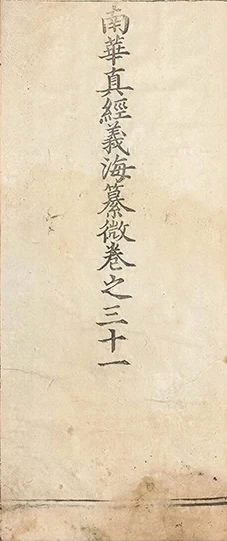 南華真經義海纂微卷之三十一